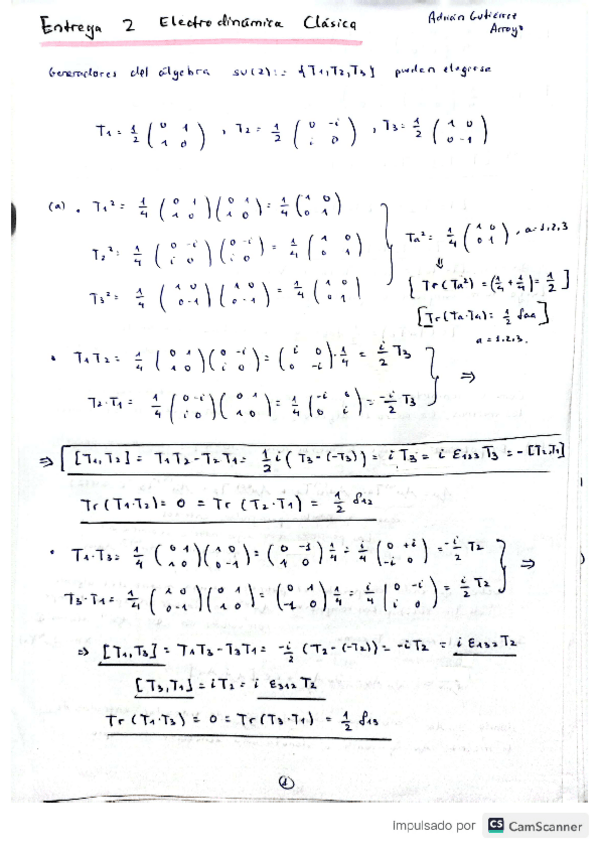 Entrega 2 Electrodinámica Clásica
Adrián Gutiérrez
Arroyo
Generadores del álgebra su(2):= {T₁,T₂,T₃} pueden elegirse
T₁ = 1/2 (0 1; 1 0), T₂ = 1/2 (0 -i; i 0), T₃ = 1/2 (1 0; 0 -1)
(a) · T₁² = 1/4 (0 1; 1 0)(0 1; 1 0) = 1/4 (1 0; 0 1)
T₂² = 1/4 (0 -i; i 0)(0 -i; i 0) = 1/4 (1 0; 0 1)
T₃² = 1/4 (1 0; 0 -1)(1 0; 0 -1) = 1/4 (1 0; 0 1)
Ta² = 1/4 (1 0; 0 1), a=1,2,3
⇓
[Tr(Ta²) = (1/4 + 1/4) = 1/2]
[Tr(Ta·Ta) = 1/2 δaa]
a = 1,2,3.
· T₁T₂ = 1/4 (0 1; 1 0)(0 -i; i 0) = (i 0; 0 -i)·1/4 = i/2 T₃
T₂·T₁ = 1/4 (0 -i; i 0)(0 1; 1 0) = 1/4 (-i 0; 0 i) = -i/2 T₃
⇒
⇒ [T₁,T₂] = T₁T₂ - T₂T₁ = 1/2 i (T₃ - (-T₃)) = i T₃ = i ε₁₂₃ T₃ = -[T₂,T₁]
Tr(T₁·T₂) = 0 = Tr(T₂·T₁) = 1/2 δ₁₂
· T₁·T₃ = 1/4 (0 1; 1 0)(1 0; 0 -1) = (0 -1; 1 0) 1/4 = i/4 (0 +i; -i 0) = -i/2 T₂
T₃·T₁ = 1/4 (1 0; 0 -1)(0 1; 1 0) = (0 1; -1 0) 1/4 = i/4 (0 -i; i 0) = i/2 T₂
⇒
⇒ [T₁,T₃] = T₁T₃ - T₃T₁ = -i/2 (T₂ - (-T₂)) = -iT₂ = i ε₁₃₂ T₂
[T₃,T₁] = iT₂ = i ε₃₁₂ T₂
Tr(T₁·T₃) = 0 = Tr(T₃·T₁) = 1/2 δ₁₃
1
Impulsado por CS CamScanner